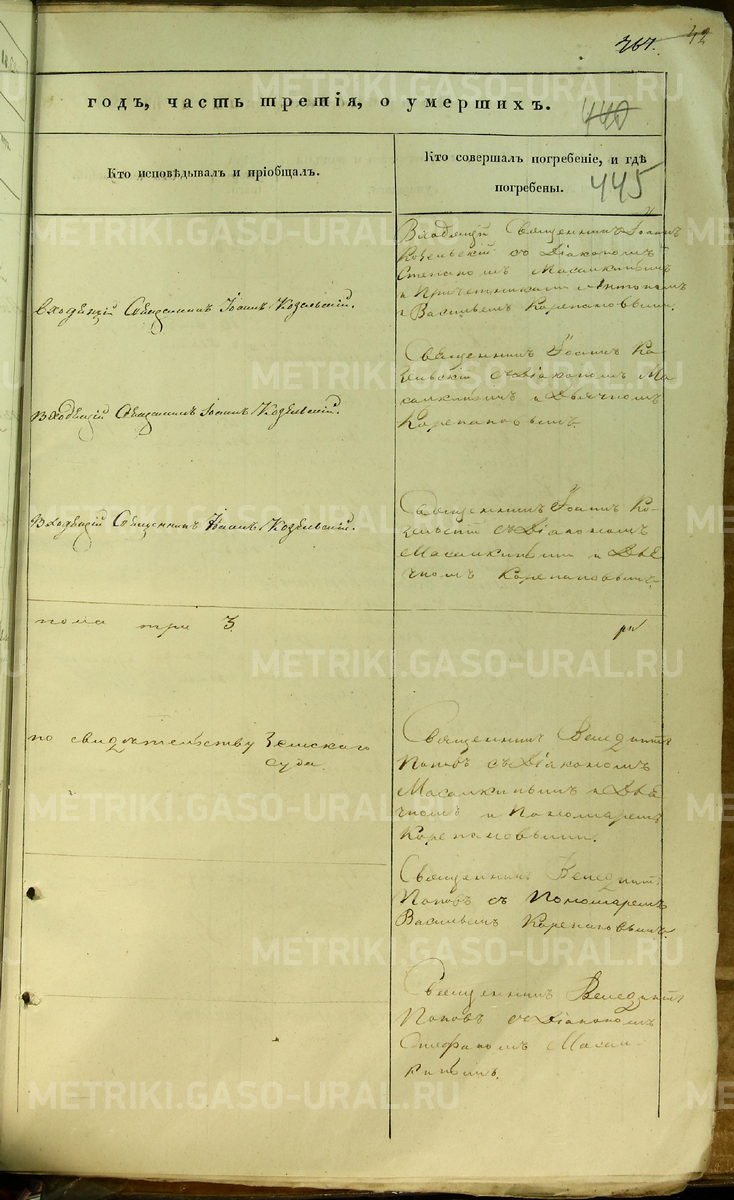 261. 42
годъ, часть третія, о умершихъ.
440
445
Кто исповѣдывалъ и пріобщалъ.
Кто совершалъ погребеніе, и гдѣ
погребены.
Входящій Священникъ Іоаннъ
Козельскій съ Діакономъ
Степаномъ Масалкинымъ
и Причетниками Антономъ
и Васильемъ Карепановыми.
Входящій Священникъ Іоаннъ Козельскій.
Священникъ Іоаннъ Ко-
зельскій съ Діакономъ Ма-
салкинымъ и Дьячкомъ
Карепановымъ.
Входящій Священникъ Іоаннъ Козельскій.
Священникъ Іоаннъ Ко-
зельскій съ Діакономъ
Масалкинымъ и Дья-
чкомъ Карепановымъ.
Входящій Священникъ Іоаннъ Козельскій.
пола три 3.
по свидѣтельству Земскаго
суда.
Священникъ Венедиктъ
Поповъ съ Діакономъ
Масалкинымъ и Дья-
чкомъ и Пономаремъ
Карепановыми.
Священникъ Венедиктъ
Поповъ съ Пономаремъ
Васильемъ Карепановымъ.
Священникъ Венедиктъ
Поповъ съ Діакономъ
Стефаномъ Масал-
кинымъ.
METRIKI.GASO-URAL.RU